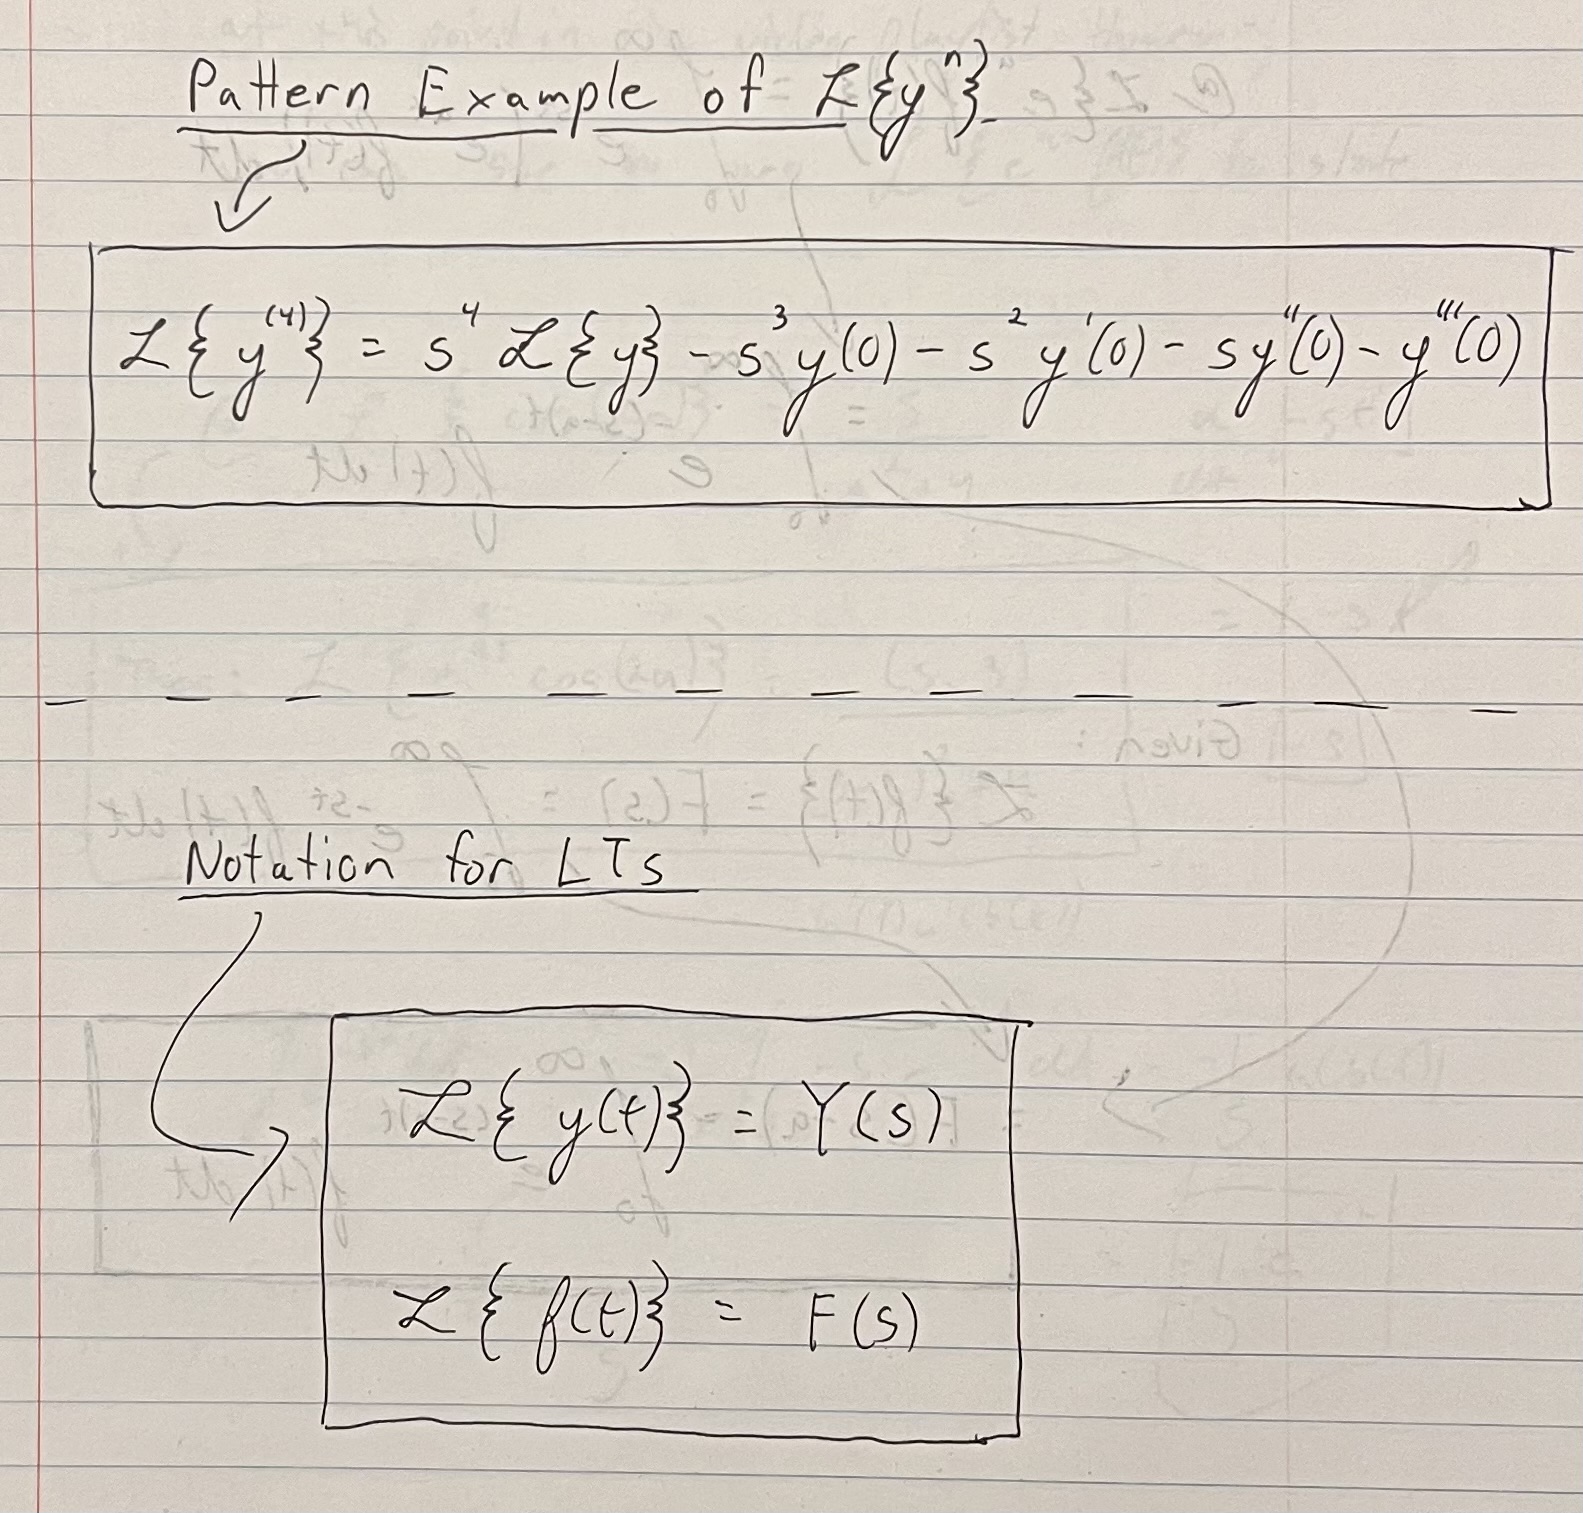 Pattern Example of ℒ{yⁿ}
ℒ{y⁽⁴⁾} = s⁴ ℒ{y} - s³y(0) - s²y'(0) - sy''(0) - y'''(0)
Notation for LTs
ℒ{y(t)} = Y(s)
ℒ{f(t)} = F(s)